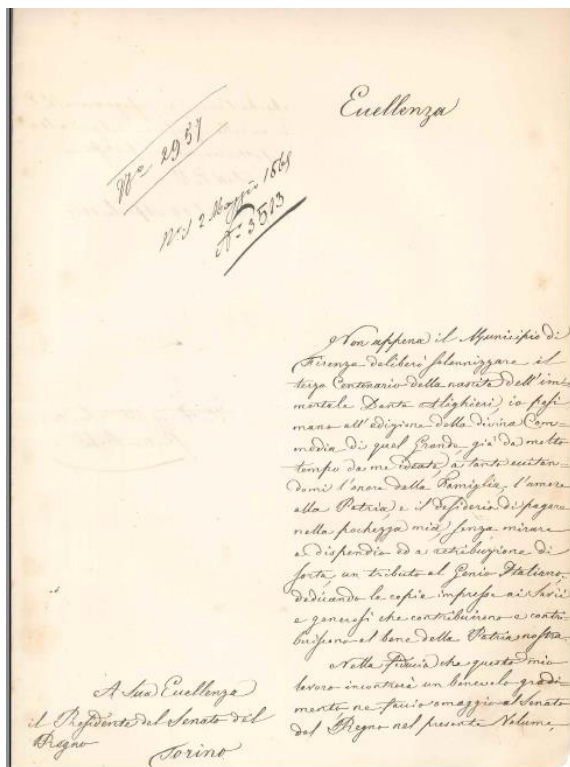 Eccellenza
Nº 2957
2 Maggio 1865
Nº 3513
Non appena il Municipio di
Firenze deliberò solennizzare il
terzo Centenario della nascita dell'im=
mortale Dante Alighieri, io posi
mano all'edizione della divina Com=
media di quel Grande, già da molto
tempo da me ideata, a tanto eccitan=
domi l'onore della Famiglia, l'amore
alla Patria, e il desiderio di pagare
nella pochezza mia, senza mirare
a dispendio od a retribuzione di
sorta, un tributo al Genio Italiano,
dedicando le copie impresse ai Savii
e generosi che contribuirono e contri=
buiscono al bene della Patria nostra.
Nella fiducia che questo mio
lavoro incontrerà un benevolo gradi=
mento ne faccio omaggio al Senato
del Regno nel presente Volume,
A Sua Eccellenza
il Presidente del Senato del
Regno
Torino